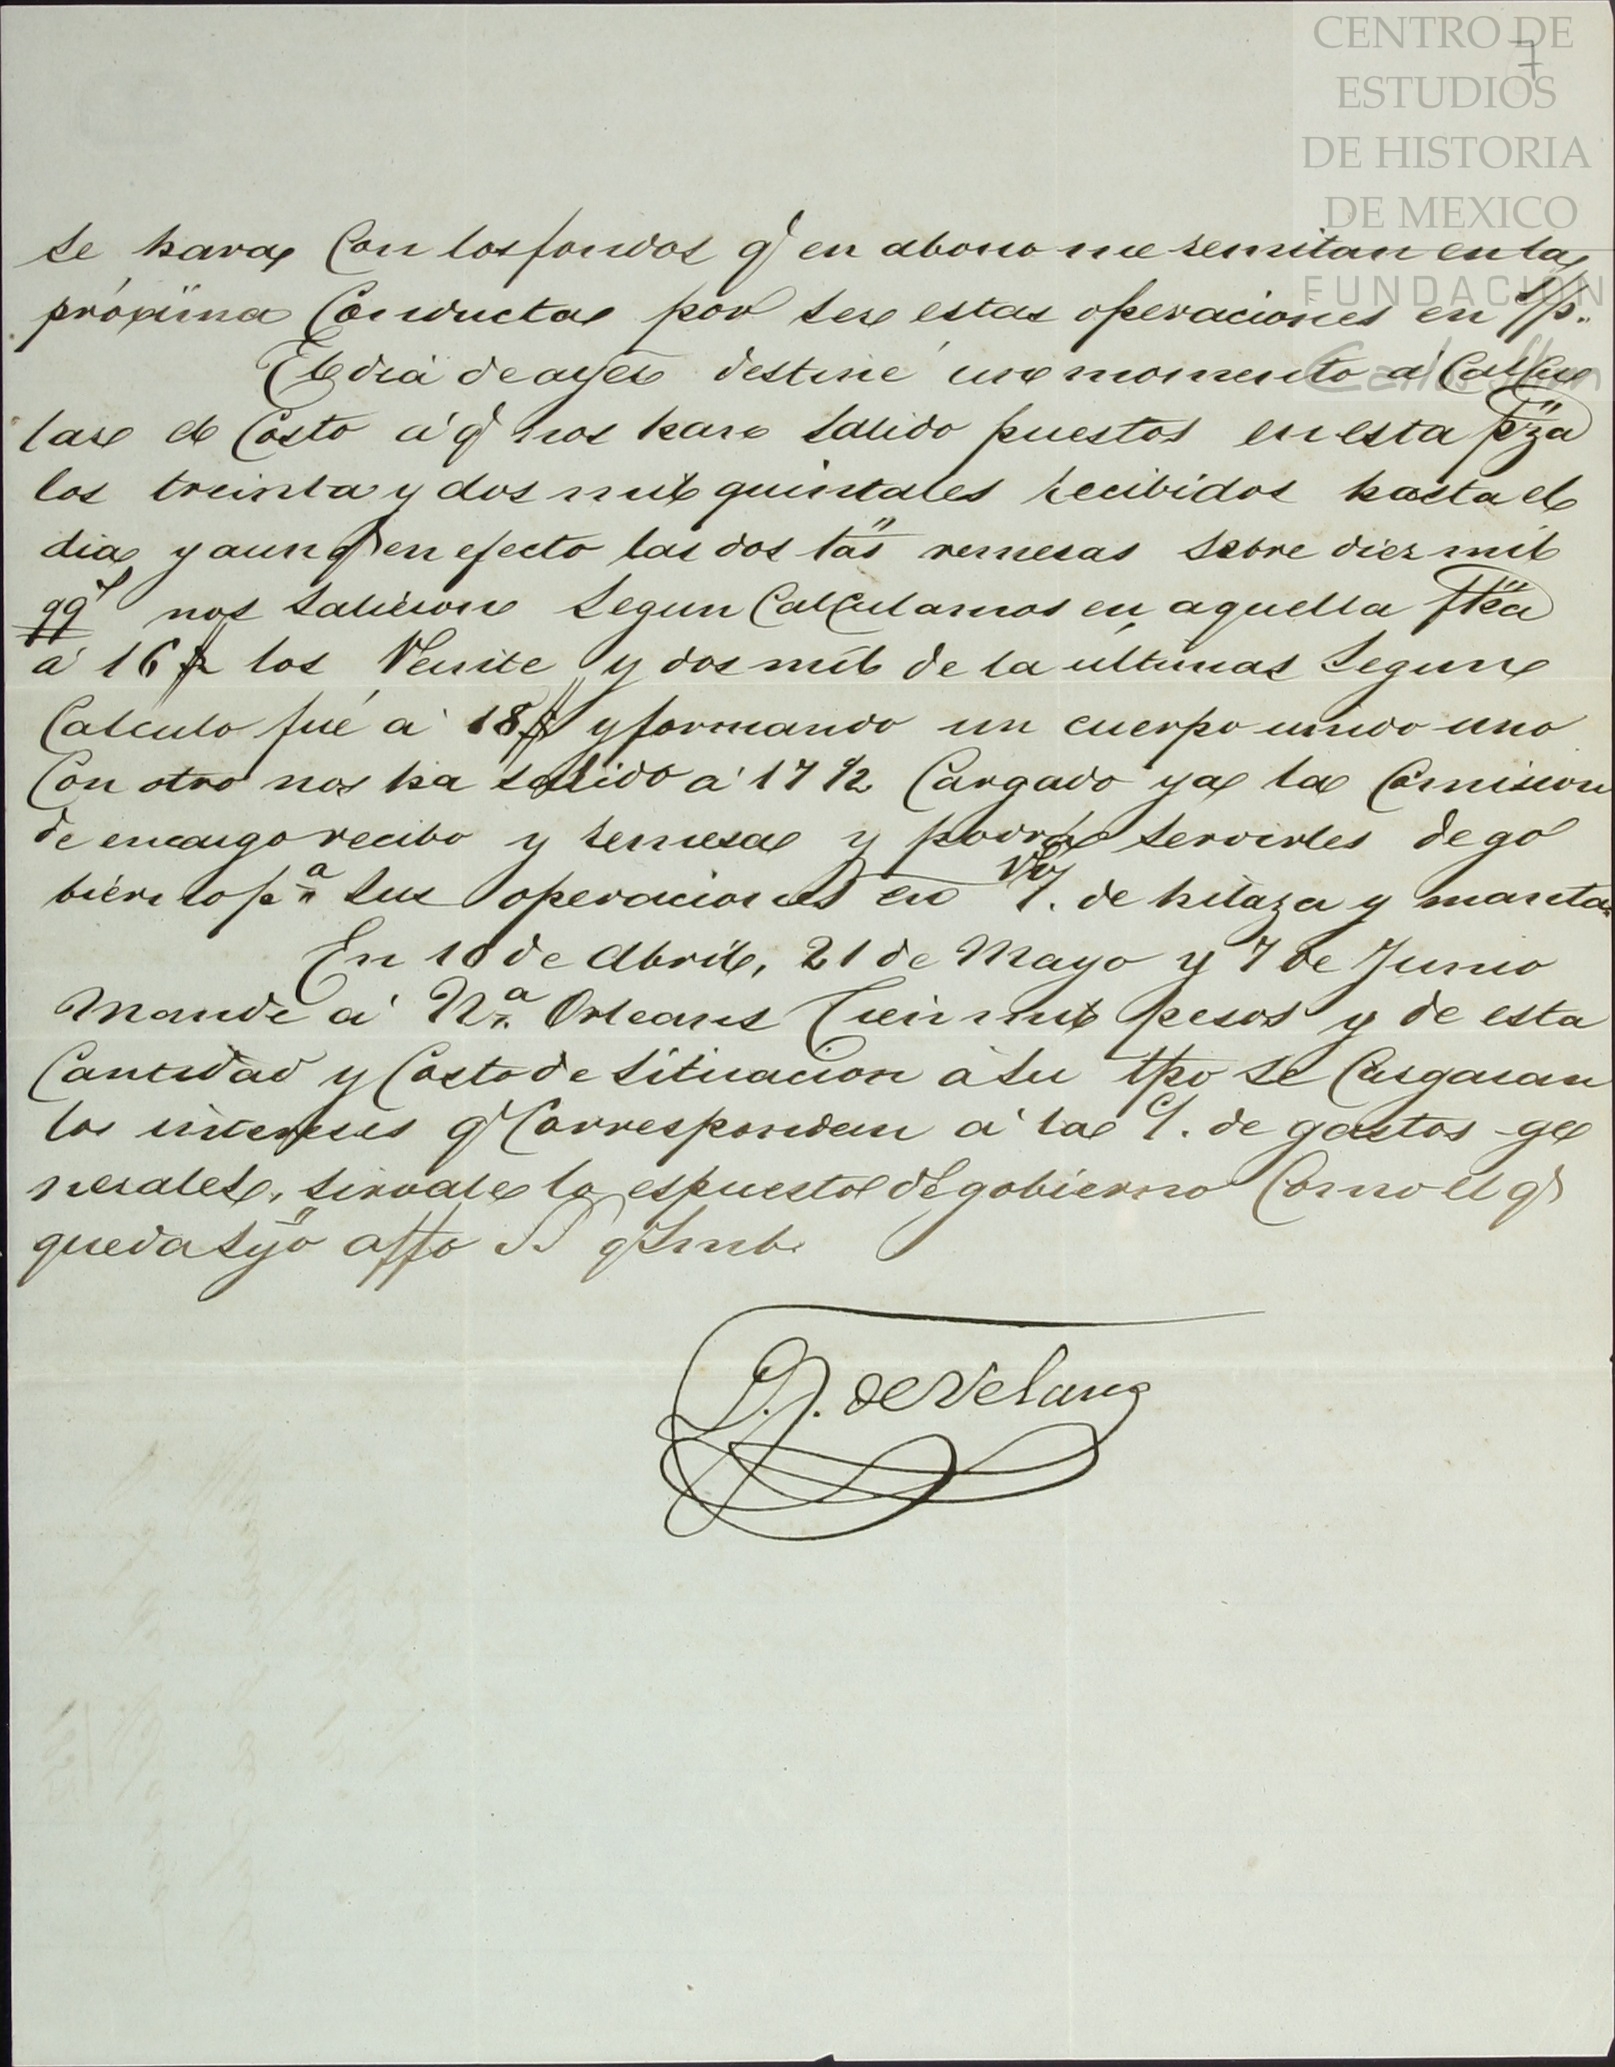 CENTRO DE
ESTUDIOS
DE HISTORIA
DE MEXICO
FUNDACIÓN
7
se hara con los fondos q̃ en abono me remitan en la
próxima conducta por ser estas operaciones en
El dia de ayer destiné un momento á calcu
lar el costo á q̃ nos han salido puestos en esta pza
los treinta y dos mil quintales recibidos hasta el
dia y aun q̃ en efecto las dos 1as remesas sobre diez mil
qqs nos salieron segun calculamos en aquella fha
á 16 $ los veinte y dos mil de la últimas segun
calculo fué á 18 $ y formando un cuerpo unido uno
con otro nos ha salido á 17 1/2 cargado ya la comision
de encargo recibo y remesa y podrá servirles de go
bierno pa sus operaciones en de hilaza y manta
En 10 de Abril, 21 de Mayo y 7 de Junio
mande á Na Orleans cien mil pesos y de esta
cantidad y costo de situacion á su tpo se cargaran
los intereses q̃ correspondan á la c/. de gastos ge
nerales, sirvale lo espuesto de gobierno como el q̃
queda suyo affo SS q S m b.
de Velasco